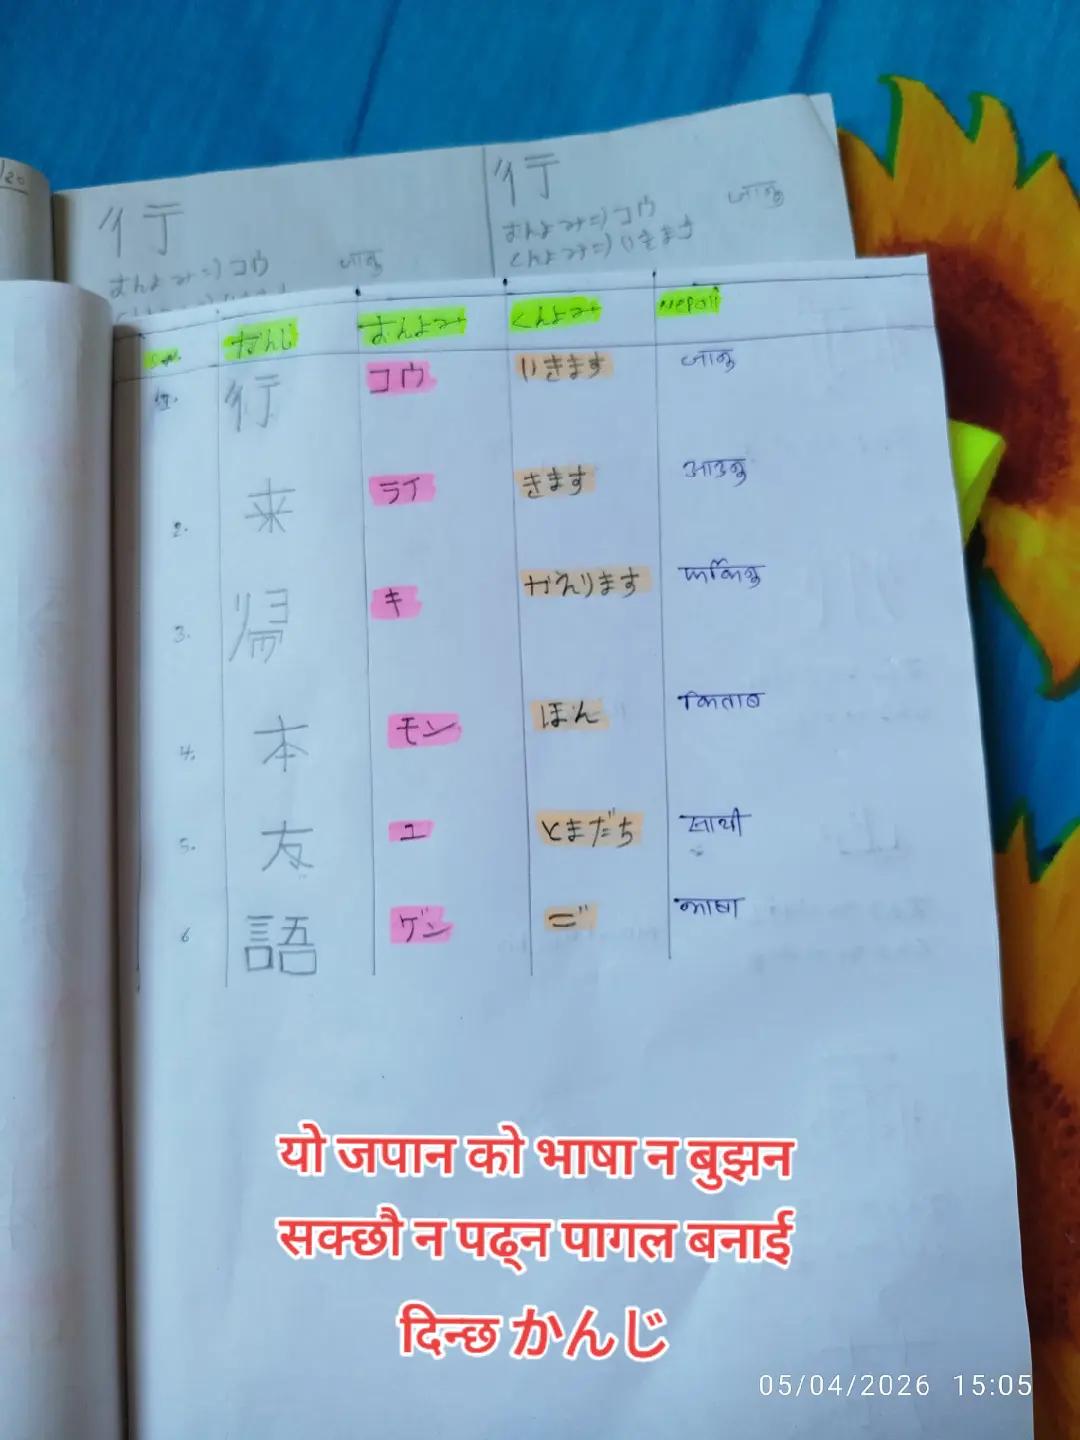 行
おんよみ=) コウ
जानु
行
おんよみ=) コウ
くんよみ=) いきます
जानु
かんじ おんよみ くんよみ nepali
1. 行 コウ いきます जानु
2. 来 ライ きます आउनु
3. 帰 キ かえります फर्किनु
4. 本 モン ほん किताब
5. 友 ユ とまだち साथी
6 語 ゲン ご भाषा
यो जपान को भाषा न बुझन
सक्छौ न पढ्न पागल बनाई
दिन्छ かんじ
05/04/2026 15:05